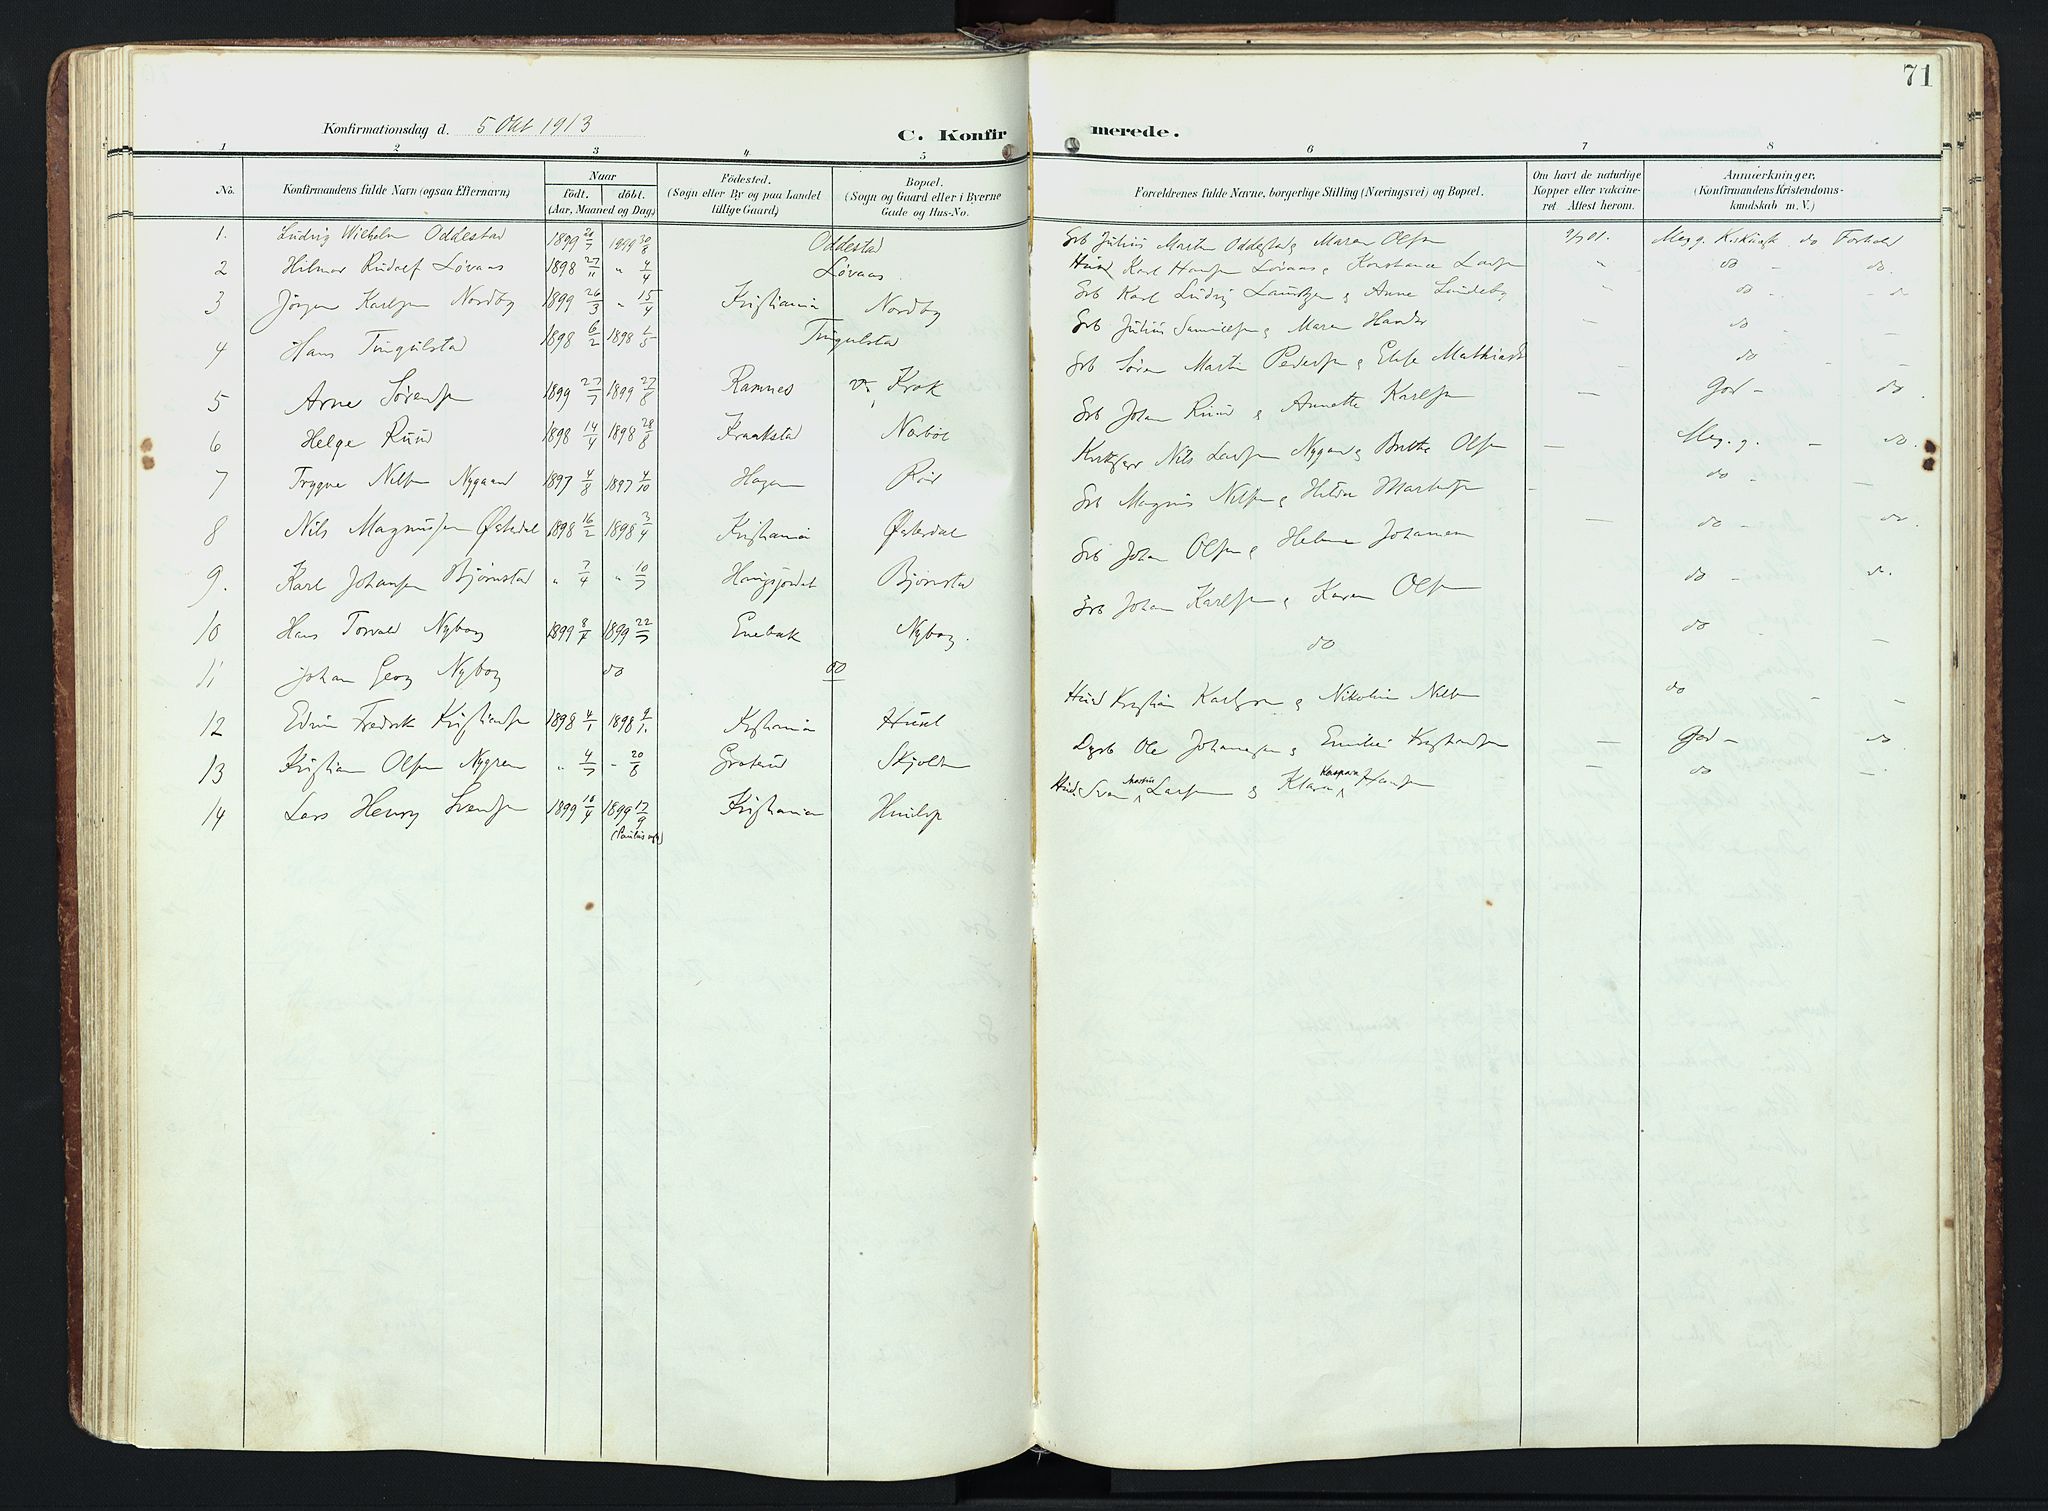 71
Konfirmationsdag d. 5 Okt 1913
C. Konfirmerede.
1 2 3 4 5 6 7 8
No.
Konfirmandens fulde Navn (ogsaa Efternavn)
Naar
födt. döbt.
(Aar, Maaned og Dag)
Födested.
(Sogn eller By og paa Landet
tillige Gaard)
Bopæl.
(Sogn og Gaard eller i Byerne
Gade og Hus-No.
Forældrenes fulde Navne, borgerlige Stilling (Næringsvei) og Bopæl.
Om havt de naturlige
Kopper eller vakcine-
ret Attest herom.
Anmærkninger.
(Konfirmandens Kristendoms-
kundskab m. V.)
1. Ludvig Wilhelm Oddestad 1899 1899 30/8 Oddestad Grb Julius Martin Oddestad & Maren Olsen Meg g. Kskundsk. do Forhold
2 Hilmar Rudolf Løvaas 1898 27/11 " 4/4 Løvaas Karl Hansen Løvaas & Konstance Larsen " do - do.
3 Jörgen Karlsen Nordby 1899 26/3 " 15/4 Kristiania Nordby Grb Karl Ludvig Lauritzen & Anne Lundeby " do - - do
4 Hans Tingulstad 1898 6/2 1898 /5 Tingulstad Grb Julius Samuelsen & Maren Hansdr - do -
5 Arne Sörensen 1899 27/7 1899 27/8 Ramnes v. Krok Grb Sören Martin Pedersen & Elise Mathiasd - do - -
6 Helge Ruud 1898 14/4 1898 28/8 Kraakstad Nærböl Grb Johan Ruud & Annette Karlsen - God - do
7 Trygve Nilsen Nygaard 1897 4/8 1897 4/10 Hagen Röis Nils Larsen Nygaard & Berthe Olsen - Meg. g. - do.
8 Nils Magnussen Østerdal 1898 16/2 1898 3/4 Kristiania Østerdal Grb Magnus Nilsen & Hilda - do - -
9. Karl Johansen Bjørnstad " 7/4 " 10/7 Bjørnstad Grb Johan Olsen & Helene Johansen - do - do.
10 Hans Torvald Nyborg 1899 8/4 1899 22/7 Enebak Nyborg. Grb Johan Karlsen & Karen Olsen do - do.
11 Johan Georg Nyborg do do do do - -
12 Edvin Fredrik Kristiansen 1898 4/1 1898 Kristiania Kristian Karlsen & Nikoline Nilsen do - -
13 Kristian Olsen Nygren " 4/7 - 20/8 Skjolden Ole Johannesen & Emilie Kristiansen - God - do
14 Lars Henry Svendsen 1899 10/4 1899 17/9 Kristiania Larsen & Klara Kaspara Hansen - do -